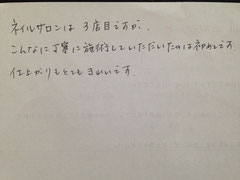 ネイルサロンは 3店目ですが、
こんなに丁寧に施術していただいたのは初めてです。
仕上がりもとてもきれいです。